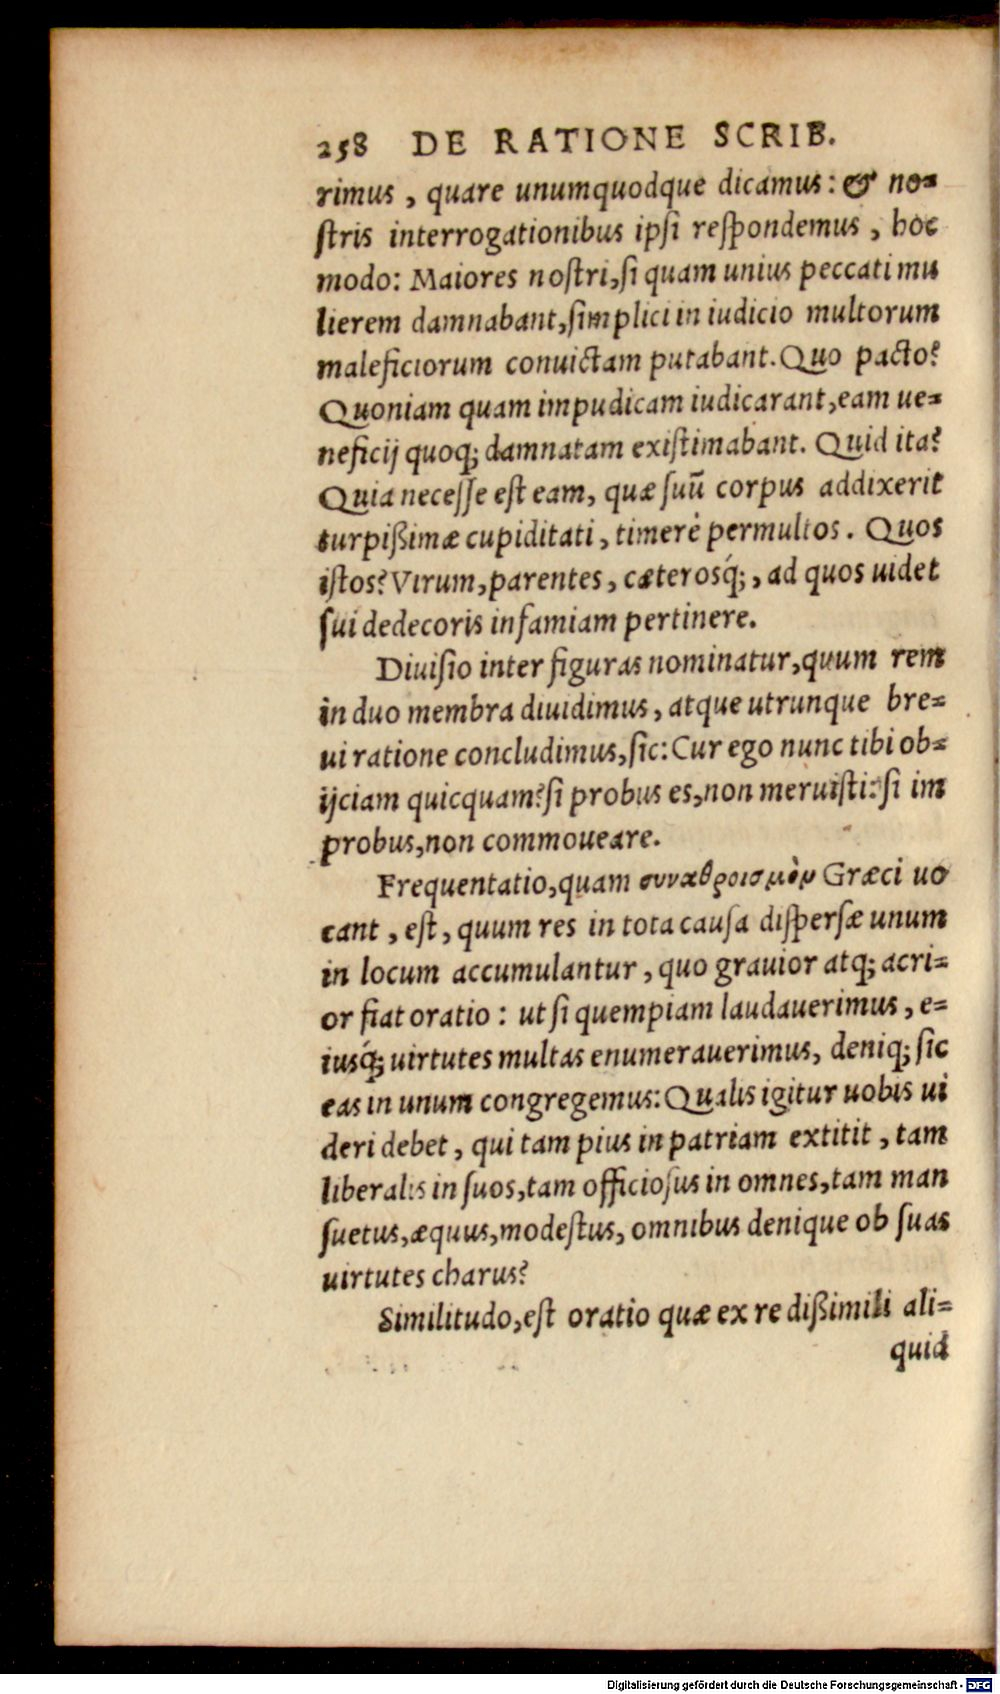 258 DE RATIONE SCRIB.
rimus, quare unumquodque dicamus: & no-
ſtris interrogationibus ipſi reſpondemus, hoc
modo: Maiores noſtri, ſi quam unius peccati mu
lierem damnabant, ſimplici in iudicio multorum
maleficiorum conuictam putabant. Quo pacto?
Quoniam quam impudicam iudicarant, eam ue-
neficij quoq; damnatam exiſtimabant. Quid ita?
Quia neceſſe eſt eam, quæ ſuū corpus addixerit
turpißimæ cupiditati, timere permultos. Quos
iſtos? Virum, parentes, cæterosq́;, ad quos uidet
ſui dedecoris infamiam pertinere.
Diuiſio inter figuras nominatur, quum rem
in duo membra diuidimus, atque utrunque bre-
ui ratione concludimus, ſic: Cur ego nunc tibi ob-
ijciam quicquam? ſi probus es, non meruiſti: ſi im
probus, non commoueare.
Frequentatio, quam συναθροισμὸν Græci uo
cant, eſt, quum res in tota cauſa diſperſæ unum
in locum accumulantur, quo grauior atq; acri-
or fiat oratio: ut ſi quempiam laudauerimus, e-
iusq́; uirtutes multas enumerauerimus, deniq; ſic
eas in unum congregemus: Qualis igitur uobis ui
deri debet, qui tam pius in patriam extitit, tam
liberalis in ſuos, tam officioſus in omnes, tam man
ſuetus, æquus, modeſtus, omnibus denique ob ſuas
uirtutes charus?
Similitudo, eſt oratio quæ ex re dißimili ali-
quid
Digitalisierung gefördert durch die Deutsche Forschungsgemeinschaft - DFG